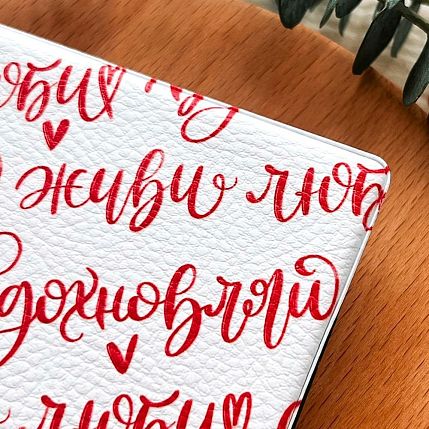 люби
живи люб
дохновляй
люби